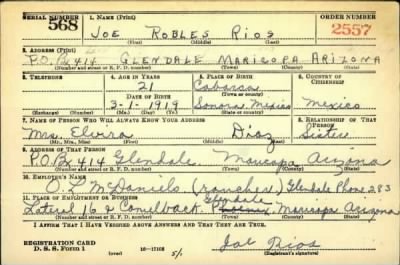 SERIAL NUMBER 1. NAME (Print) ORDER NUMBER
568 JOE ROBLES RIOS 2557
(First) (Middle) (Last)
2. ADDRESS (Print)
P.O. Bx 414 GLENDALE MARICOPA ARIZONA
(Number and street or R. F. D. number) (Town) (County) (State)
3. TELEPHONE 4. AGE IN YEARS 5. PLACE OF BIRTH 6. COUNTRY OF CITIZENSHIP
21 Caborca
(Town or county)
DATE OF BIRTH
3-1-1919 Sonora Mexico Mexico
(Exchange) (No.) (Mo.) (Day) (Yr.) (State or country)
7. NAME OF PERSON WHO WILL ALWAYS KNOW YOUR ADDRESS 8. RELATIONSHIP OF THAT PERSON
Mrs. Elvira Diaz Sister
(Mr., Mrs., Miss) (First) (Middle) (Last)
9. ADDRESS OF THAT PERSON
P.O. Bx 414 Glendale, Maricopa Arizona
(Number and street or R. F. D. number) (Town) (County) (State)
10. EMPLOYER'S NAME
O. L. McDaniels (rancher) Glendale Phone 283
11. PLACE OF EMPLOYMENT OR BUSINESS
Glendale
Lateral 16 & Camelback Phoenix, Maricopa Arizona
(Number and street or R. F. D. number) (Town) (County) (State)
I AFFIRM THAT I HAVE VERIFIED ABOVE ANSWERS AND THAT THEY ARE TRUE.
REGISTRATION CARD
D. S. S. Form 1 (over) 16-17105 5/1 Joe Rios